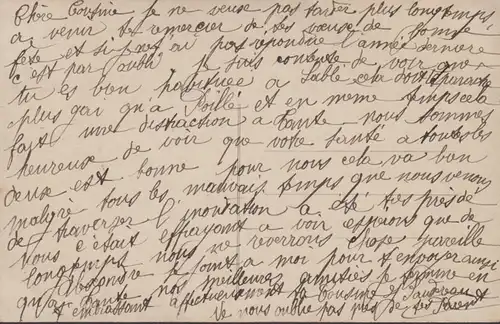 Chère Cousine je ne veuse pas tarder plus longtemps
a venir te remercier de tes vœuse de bonne
fête et si je n'ai pas répondre l'année dernière
c'est par oubli je suis contente de voir que
tu es bien habituée a Sablé cela doit paraitre
plus gai qu'a Poillé et en meme temps cela
fait une distraction a Tante nous sommes
heureux de voir que votre santé a toutes les
deux est bonne pour nous cela va bon
malgré tous les mauvais temps que nous venons
de traverser l'inondation a été très près de
nous c'était effrayant a voir espérons que de
longtemps nous ne reverrons chose pareille
se joint a moi pour t'envoyer ainsi
qu'a Tante nos meilleures amitiés je termine en
t'embrassant affectueusement ta cousine
Ne nous oublie pas près de tes Parents